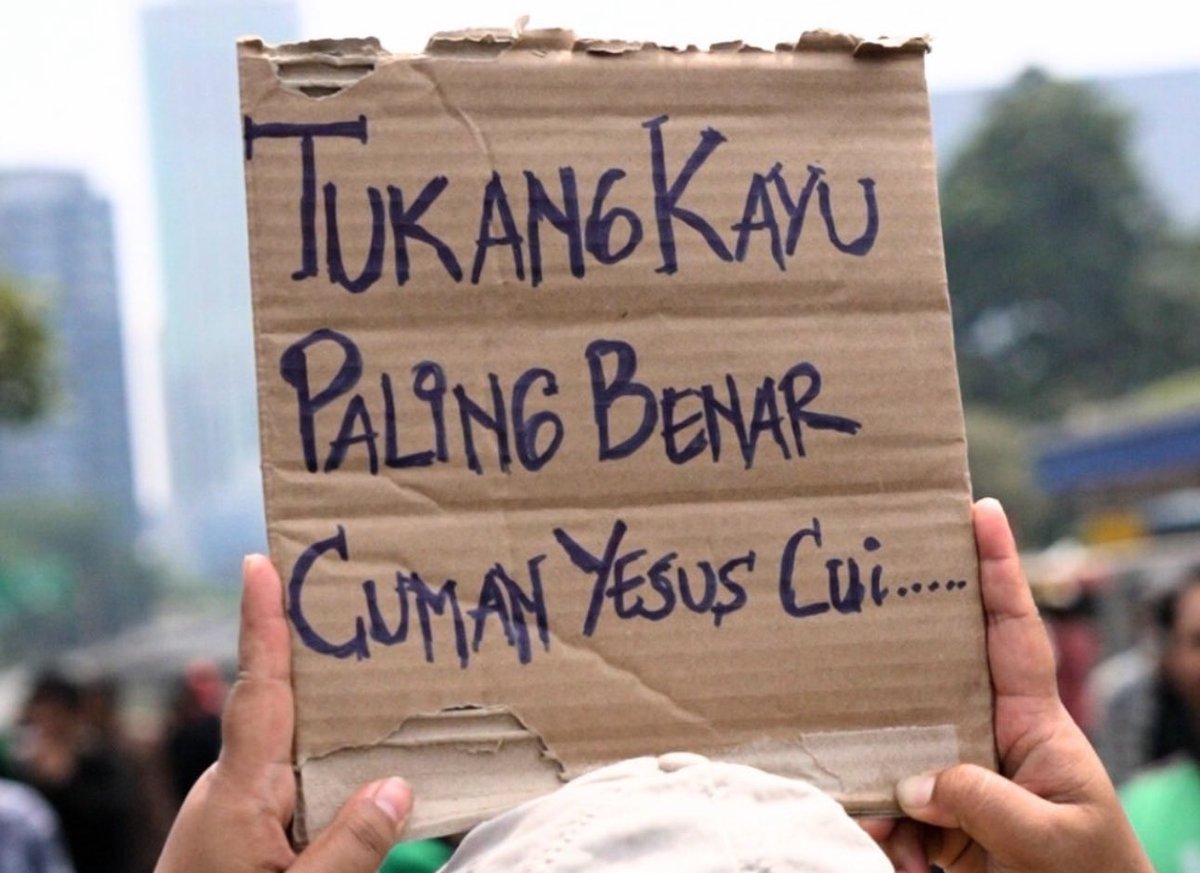 TUKANG KAYU
PALING BENAR
CUMAN YESUS CUI.....